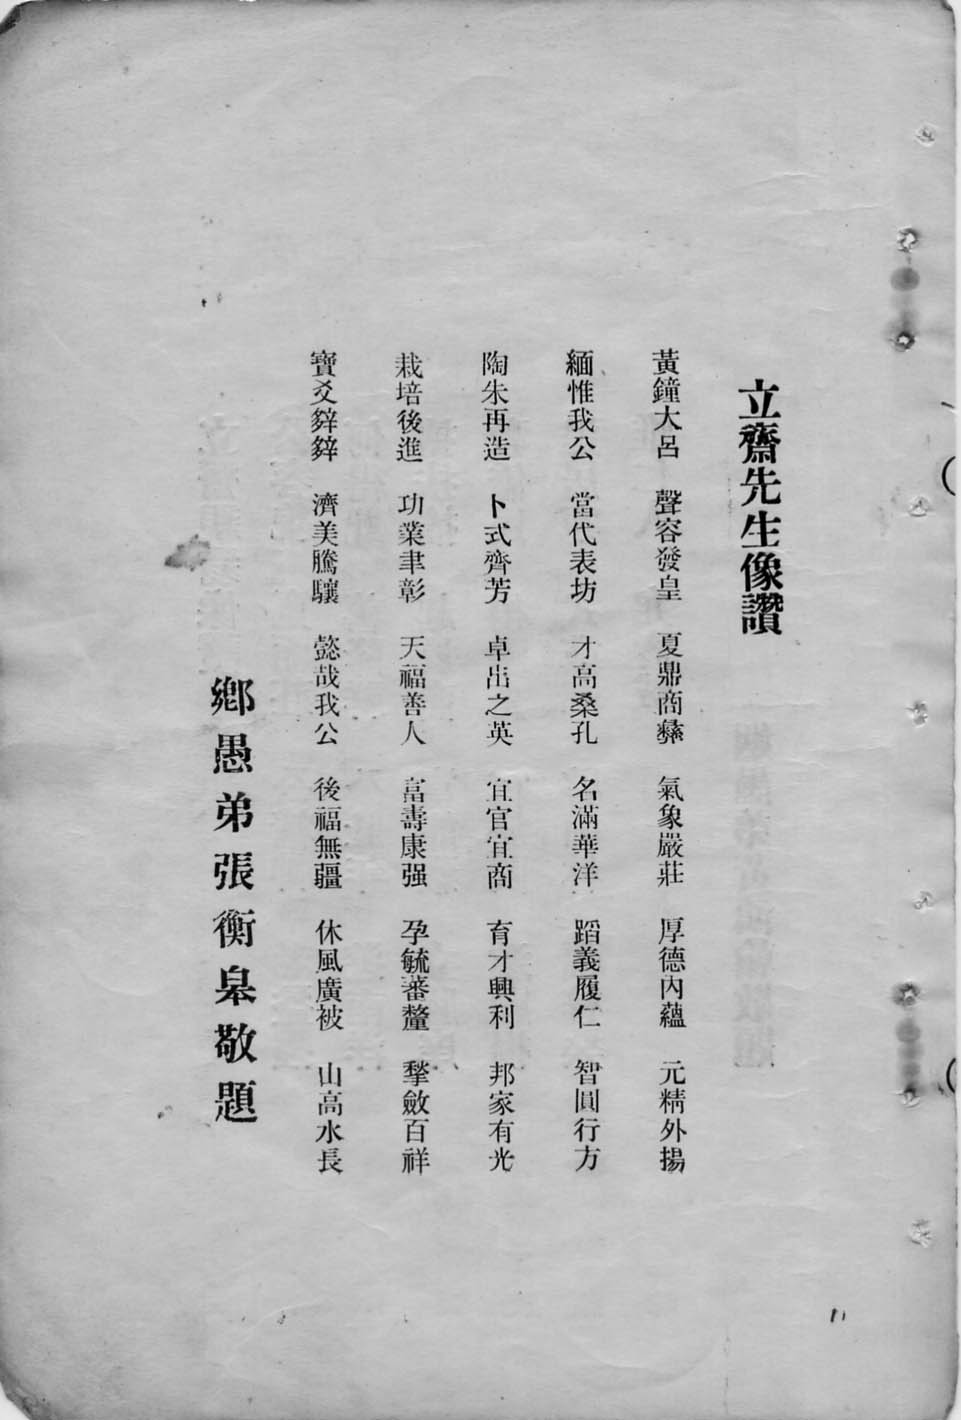 立齋先生像讚
黃鐘大呂 聲容發皇 夏鼎商彝 氣象嚴莊 厚德內蘊 元精外揚
緬惟我公 當代表坊 才高桑孔 名滿華洋 蹈義履仁 智圓行方
陶朱再造 卜式齊芳 卓出之英 宜官宜商 育才興利 邦家有光
栽培後進 功業聿彰 天福善人 富壽康强 孕毓蕃釐 揫斂百祥
寶爻辥辥 濟美騰驤 懿哉我公 後福無疆 休風廣被 山高水長
鄉愚弟張衡皋敬題
11